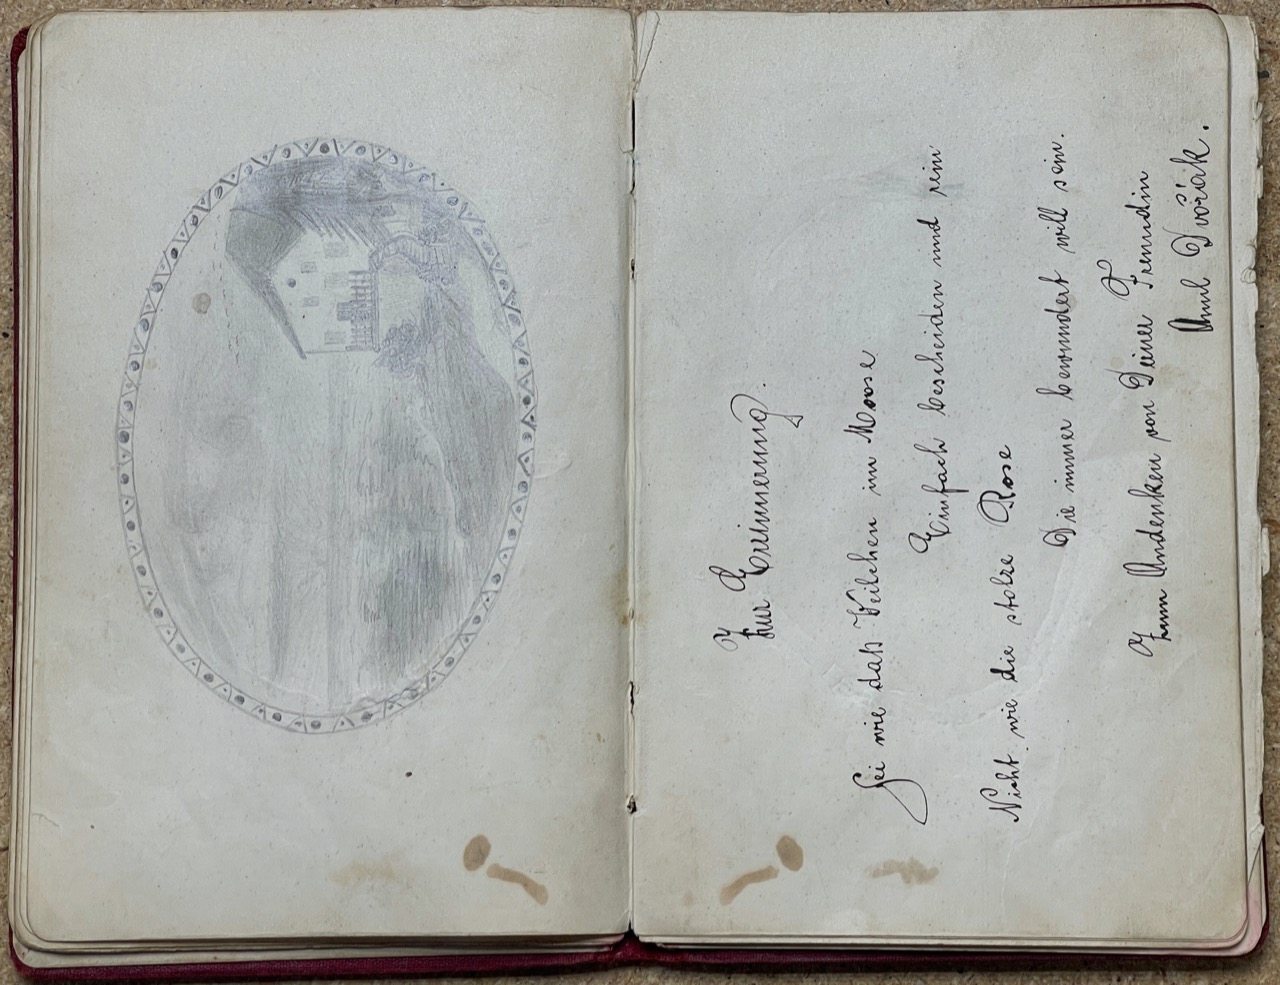 Zur Erinnerung.
Sei wie daß Veilchen im Moose
Einfach bescheiden und rein
Nicht wie die stolze Rose
Die immer bewundert will sein.
Zum Andenken von Deiner Freundin
Dvořák.